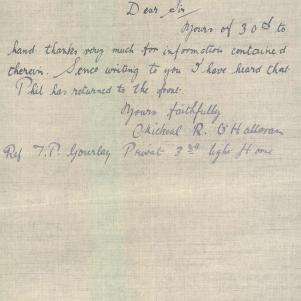 Dear Sir
Yours of 30th to
hand thanks very much for information contained
therein. Sence writing to you I have heard that
Phil has returned to the front.
Yours faithfully
Micheal R. O'Halloran
Ref T.P. Gourlay Privat 3rd light Horse